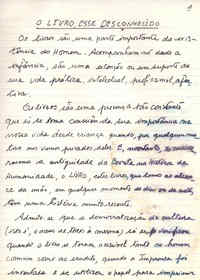 1
O LIVRO, ESSE DESCONHECIDO
Os livros são uma parte importante da exis-
tência do Homem. Acompanham-no desde a
infância, são uma atenção ou um suporte da
sua vida prática, intelectual, profissional, afec-
tiva.
Os livros são uma presença tão constante
que só se toma consciência da sua importância na
nossa vida desde criança quando, por qualquer motivo
nos vimos privados deles. E, no entanto, e
apesar da antiguidade da Escrita na História da
Humanidade, o LIVRO, este livro, que temos ao alcan-
ce da mão, em qualquer momento do dia ou da noite,
tem uma história muito recente.
Admite-se que a democratização da cultura
(isto é, o acesso de todos à mesma) só se verificou
quando o livro se tornou acessível tanto ao homem
comum como ao erudito, quando a Imprensa foi
inventada e se utilizou o papel para imprimir